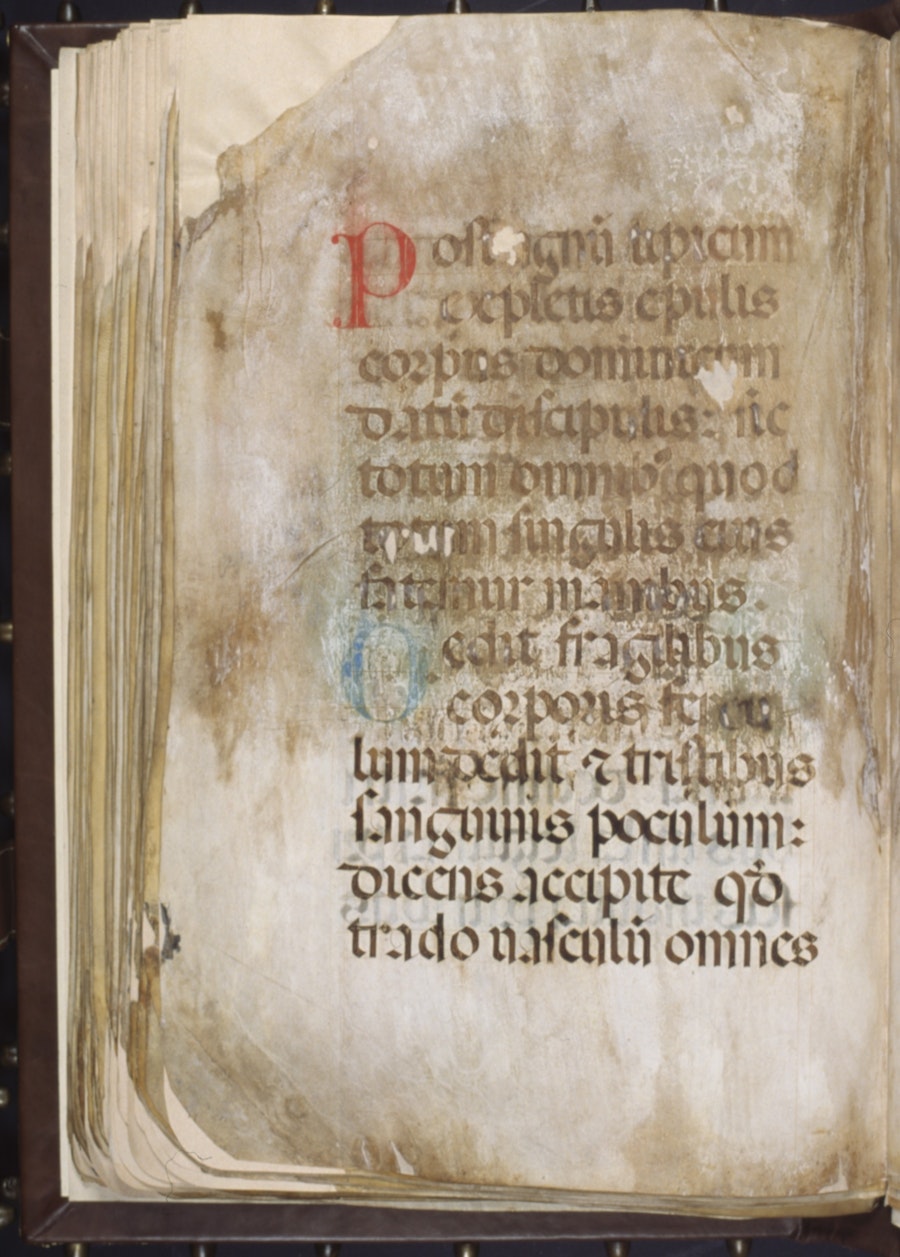 Post agnū tipicum
expletis epulis
corpus dominicum
datū discipulis: sic
totum omnibꝰ quod
totum singulis eius
fatemur manibus.
Dedit fragilibus
corporis fercu
lum dedit ⁊ tristibus
sanguinis poculum:
dicens accipite qđ
trado uasculū omnes